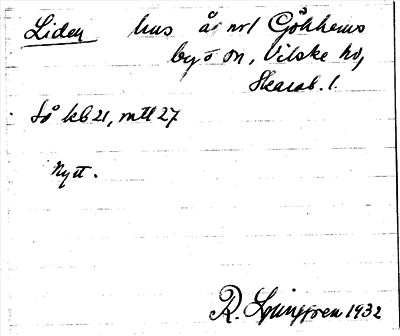 Liden hus å nr 1 Gökhems
by o sn, Vilske hd,
Skarab. l.
Så kb 21, mtl 27
Nytt.
R. Ljunggren 1932